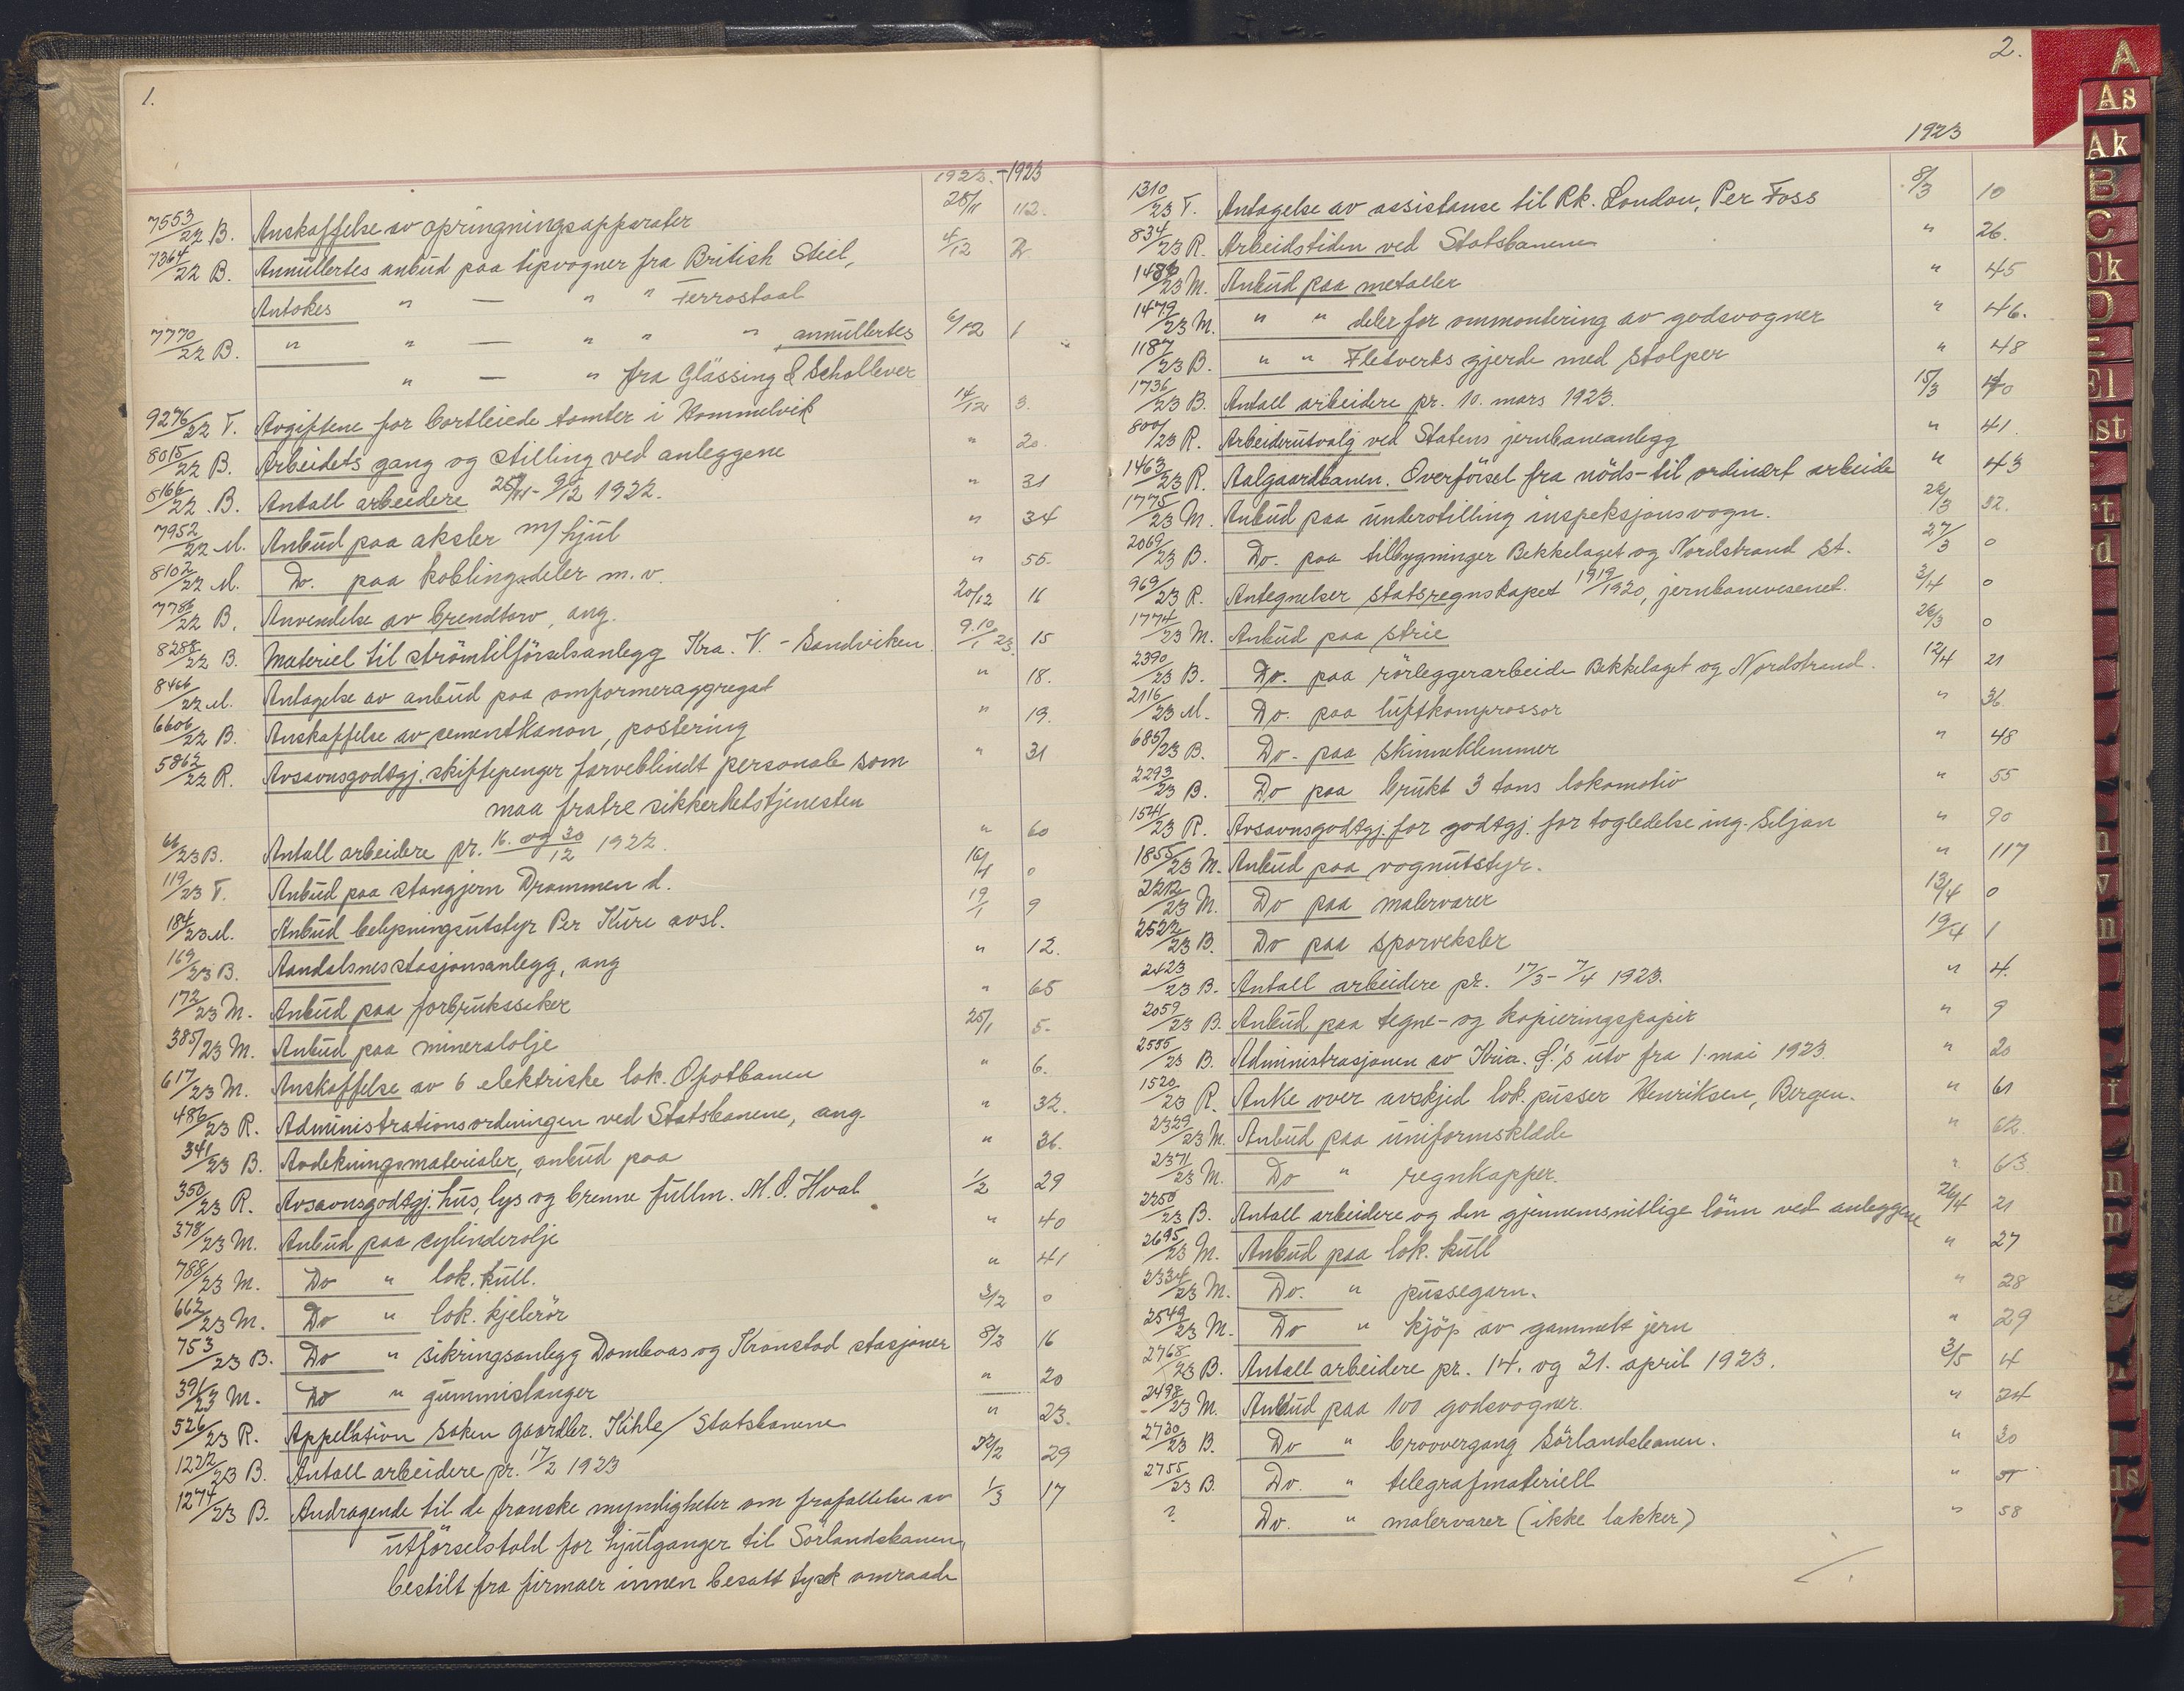 1.
1922.-1923
7553/22 B. Anskaffelse av opringningsapparater 28/11 112.
7364/22 B. Annullertes anbud paa tipvogner fra British Steel, 4/12 2
Antokes " — " " Ferrostaal
7770/22 B. " " — " " " annullertes 6/12 1
" — " fra Glässing & Schollwer
9276/22 T. Avgiftene for bortleiede tomter i Hommelvik 14/12 3.
8015/22 B. Arbeidets gang og stilling ved anleggene " 20.
8166/22 B. Antall arbeidere 25/11 - 9/12 1922. " 31
7952/22 M. Anbud paa aksler m/ hjul " 34
8102/22 M. Do. paa koblingsdeler m.v. " 55.
7786/22 B. Anvendelse av brendtorv, ang. 20/12 16
8288/22 B. Materiel til strömtilförselsanlegg Kra. V. - Sandviken 9.10/1 23. 15
8466/22 M. Antagelse av anbud paa omformeraggregat " 18.
6606/22 B. Anskaffelse av cementkanon, postering " 19.
5862/22 R. Avsavnsgodtgj. skiftepenger farveblindt personale som " 31
maa fratre sikkerhetstjenesten
66/23 B. Antall arbeidere pr. 16. og 30/12 1922. " 60
119/23 T. Anbud paa stangjern Drammen d. 16/1 0
184/23 M. Anbud belysningsutstyr Per Kure avsl. 19/1 9
169/23 B. Aandalsnes stasjonsanlegg, ang " 12.
172/23 M. Anbud paa forbrukssaker " 65
385/23 M. Anbud paa mineralolje 25/1 5.
617/23 M. Anskaffelse av 6 elektriske lok. Ofotbanen " 6.
486/23 R. Administrationsordningen ved Statsbanene, ang. " 32.
341/23 B. Avdekningsmaterialer, anbud paa " 36.
350/23 R. Avsavnsgodtgj. hus, lys og brenne fullm. M. O. Hval 1/2 29
378/23 M. Anbud paa cylinderolje " 40
788/23 M. Do " lok. kull. " 41
662/23 M. Do " lok. kjelerör 3/2 0
753/23 B. Do " sikringsanlegg Dombaas og Kronstad stasjoner 8/2 16
391/23 M. Do " gummislanger " 20
526/23 R. Appelation saken gaardbr. Kihle / Statsbanene " 23.
1222/23 B. Antall arbeidere pr. 17/2 1923 22/2 29
1274/23 B. Andragende til de franske myndigheter om frafallelse av 1/3 17
utförselstold for hjulganger til Sörlandsbanen,
bestilt fra firmaer innen besatt tysk omraade
2.
A
As
Ak
B
C
Ck
D
El
1923
1310/23 T. Antagelse av assistanse til Rk. London, Per Foss 8/3 10
834/23 R. Arbeidstiden ved Statsbanene " 26.
1486/23 M. Anbud paa metaller " 45
1479/23 M. " " deler for ommontering av godsvogner " 46.
1187/23 B. " " Fletverks gjerde med stolper " 48
1736/23 B. Antall arbeidere pr. 10. mars 1923. 15/3 40
800/23 R. Arbeiderutvalg ved Statens jernbaneanlegg " 41.
1463/23 R. Aalgaardbanen. Overförsel fra nöds- til ordinært arbeide " 43
1775/23 M. Anbud paa understilling inspeksjonsvogn. 22/3 32.
2069/23 B. Do. paa tilbygninger Bekkelaget og Nordstrand st. 27/3 0
969/23 R. Antegnelser statsregnskapet 1919/1920, jernbanevesenet. 3/4 0
1774/23 M. Anbud paa strie 26/3 0
2390/23 B. Do. paa rörleggerarbeide Bekkelaget og Nordstrand. 12/4 21
2116/23 M. Do. paa luftkompressor " 36.
685/23 B. Do. paa skinneklemmer " 48
2293/23 B. Do paa brukt 3 tons lokomotiv " 55
1541/23 R. Avsavnsgodtgj. for godtgj. for togledelse ing. Siljan " 90
1855/23 M. Anbud paa vognutstyr. " 117
2212/23 M. Do paa malervarer 13/4 0
2522/23 B. Do paa sporveksler 19/4 1
2423/23 B. Antall arbeidere pr. 17/3 - 7/4 1923. " 4.
2059/23 B. Anbud paa tegne- og kopieringspapir " 9
2555/23 B. Administrasjonen av Kria. S.'s utv fra 1. mai 1923. " 20
1520/23 R. Anke over avskjed lok. pusser Henriksen, Bergen. " 61
2329/23 M. Anbud paa uniformsklæde " 62.
2371/23 M. Do " regnkapper. " 63
2250/23 B. Antall arbeidere og den gjennemsnitlige lönn ved anleggene 26/4 21
2695/23 M. Anbud paa lok. kull " 27
2334/23 M. Do. " pussegarn. " 28
2549/23 M. Do " kjöp av gammelt jern " 29
2768/23 B. Antall arbeidere pr. 14. og 21. april 1923. 3/5 4
2498/23 M. Anbud paa 100 godsvogner. " 24
2730/23 B. Do " broovergang Sörlandsbanen. " 30
2755/23 B. Do. " telegrafmateriell "
? Do. " malervarer (ikke lakker) " 58